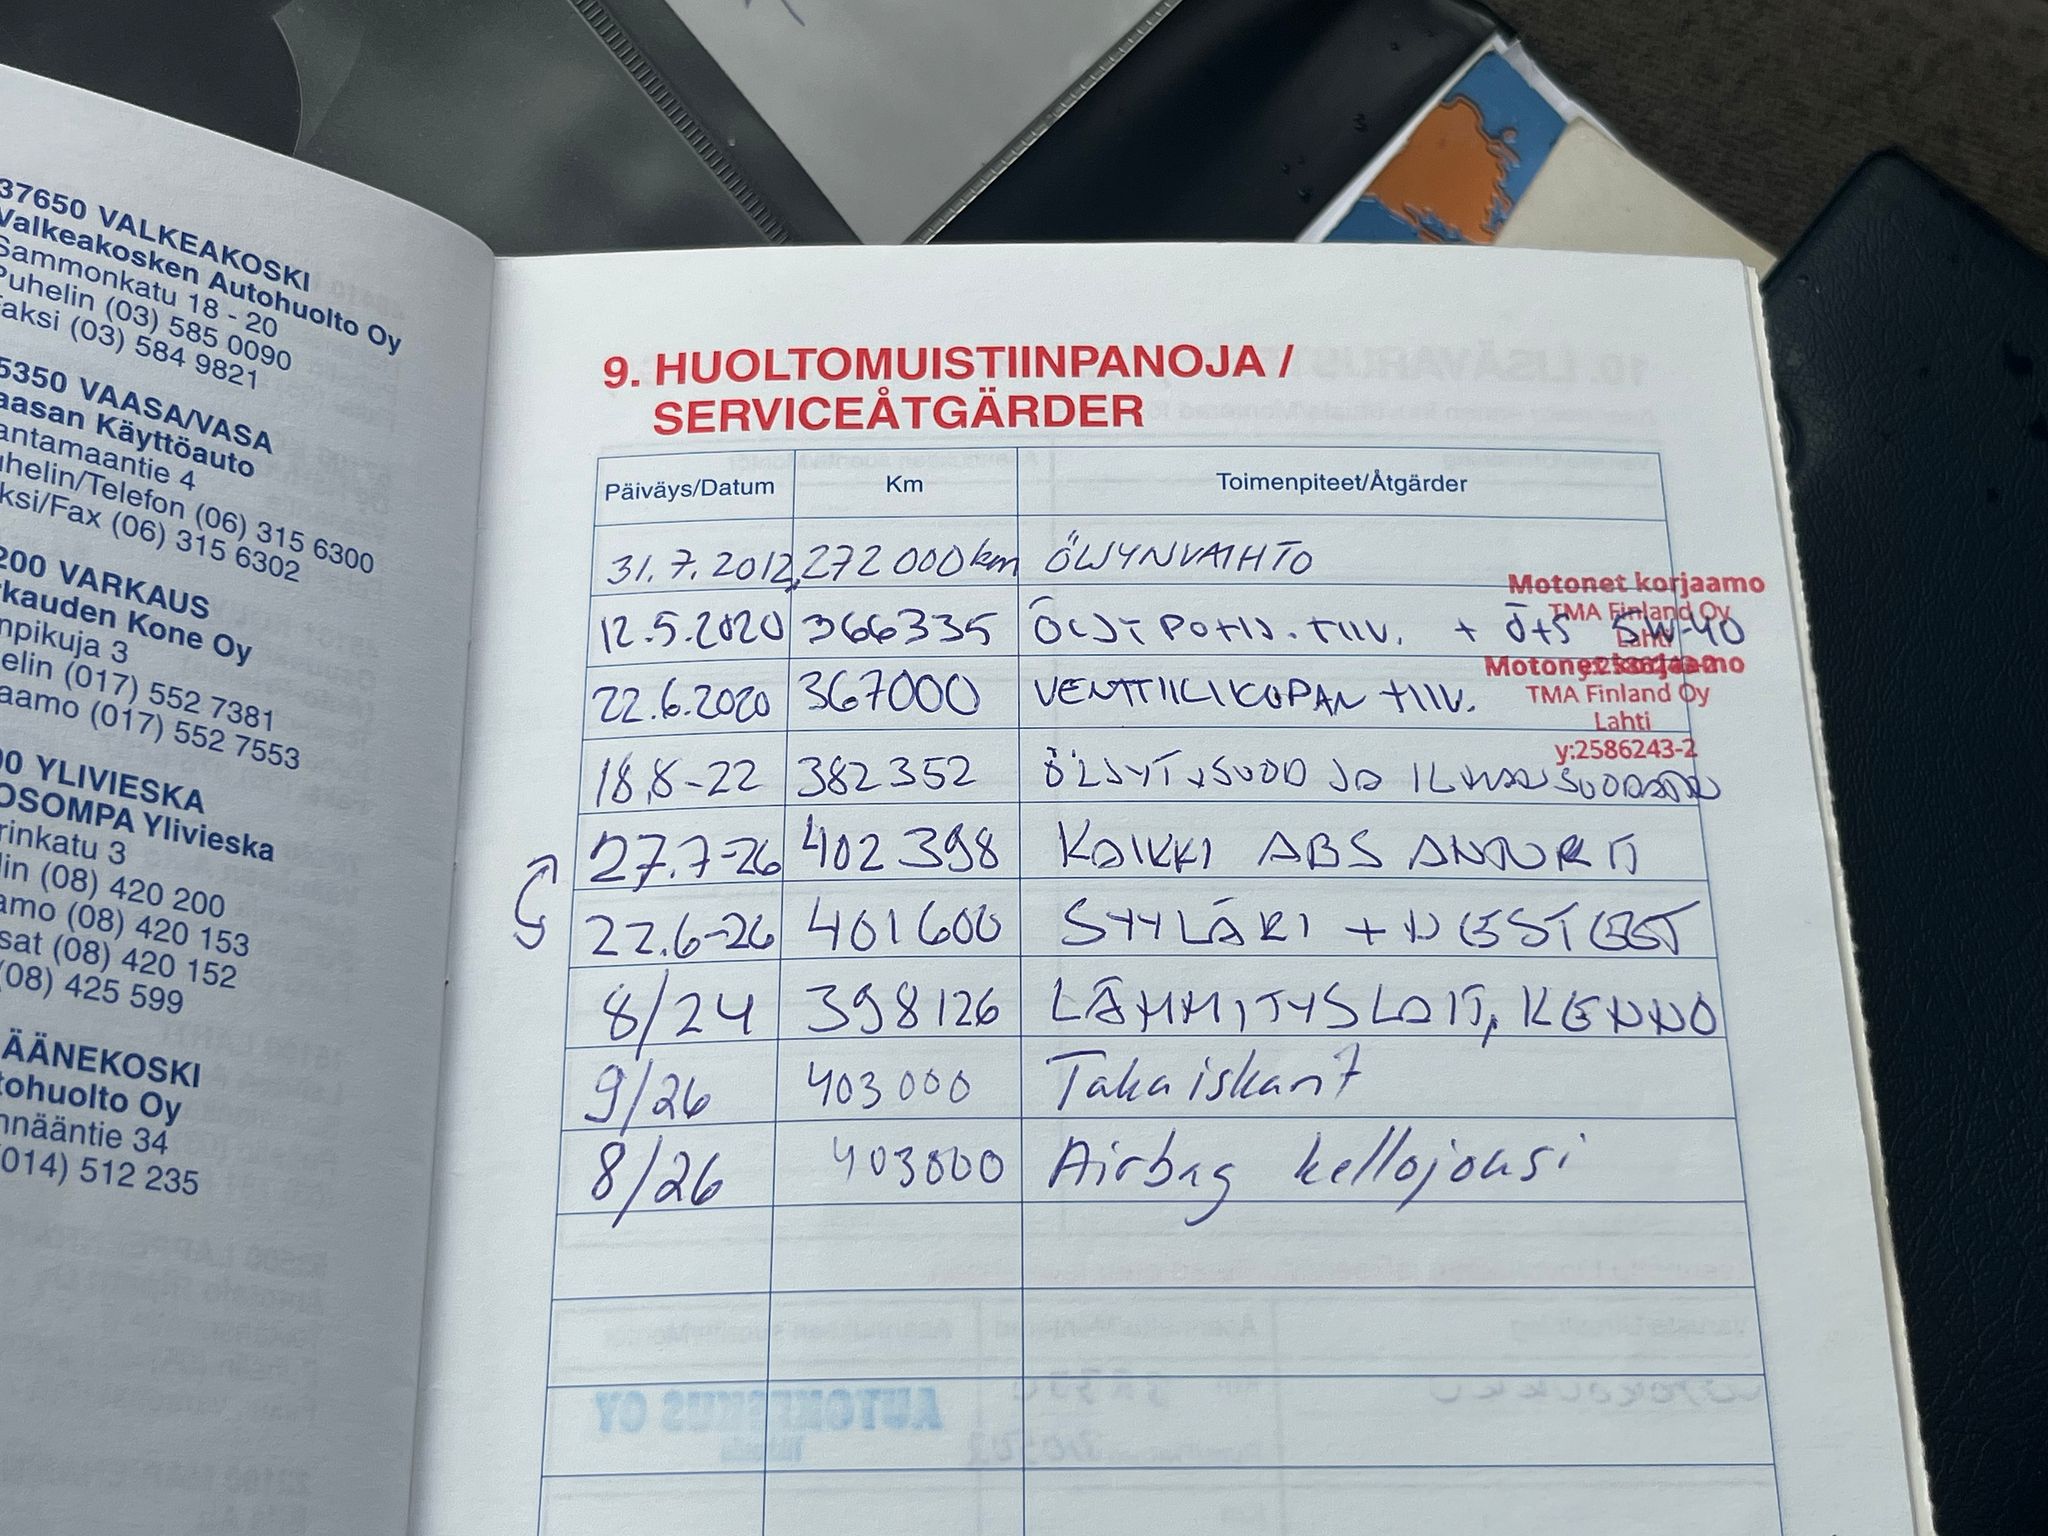 37650 VALKEAKOSKI
Valkeakosken Autohuolto Oy
Sammonkatu 18 - 20
Puhelin (03) 585 0090
Faksi (03) 584 9821
5350 VAASA/VASA
aasan Käyttöauto
antamaantie 4
uhelin/Telefon (06) 315 6300
ksi/Fax (06) 315 6302
200 VARKAUS
rkauden Kone Oy
npikuja 3
elin (017) 552 7381
aamo (017) 552 7553
00 YLIVIESKA
OSOMPA Ylivieska
rinkatu 3
lin (08) 420 200
amo (08) 420 153
sat (08) 420 152
(08) 425 599
ÄÄNEKOSKI
tohuolto Oy
nnääntie 34
(014) 512 235
9. HUOLTOMUISTIINPANOJA /
SERVICEÅTGÄRDER
Päiväys/Datum Km Toimenpiteet/Åtgärder
31.7.2012, 272 000 km ÖLJYNVAIHTO
Motonet korjaamo
TMA Finland Oy
Lahti
12.5.2020 366335 ÖLJYPOHJ. TIIV. + Ö+S 5W-40
Motonet korjaamo
TMA Finland Oy
Lahti
y:2586243-2
22.6.2020 367000 VENTTIILIKOPAN TIIV.
18.8-22 382352 ÖLJYT, SUOD JA ILMANSUODATIN
27.7-26 402 398 KAIKKI ABS ANTURIT
22.6-26 401600 SYYLÄRI + NESTEET
8/24 398126 LÄMMITYSLAIT, KENNO
9/26 403 000 Takaiskant
8/26 403000 Airbag kellojousi
AUTOKESKUS OY